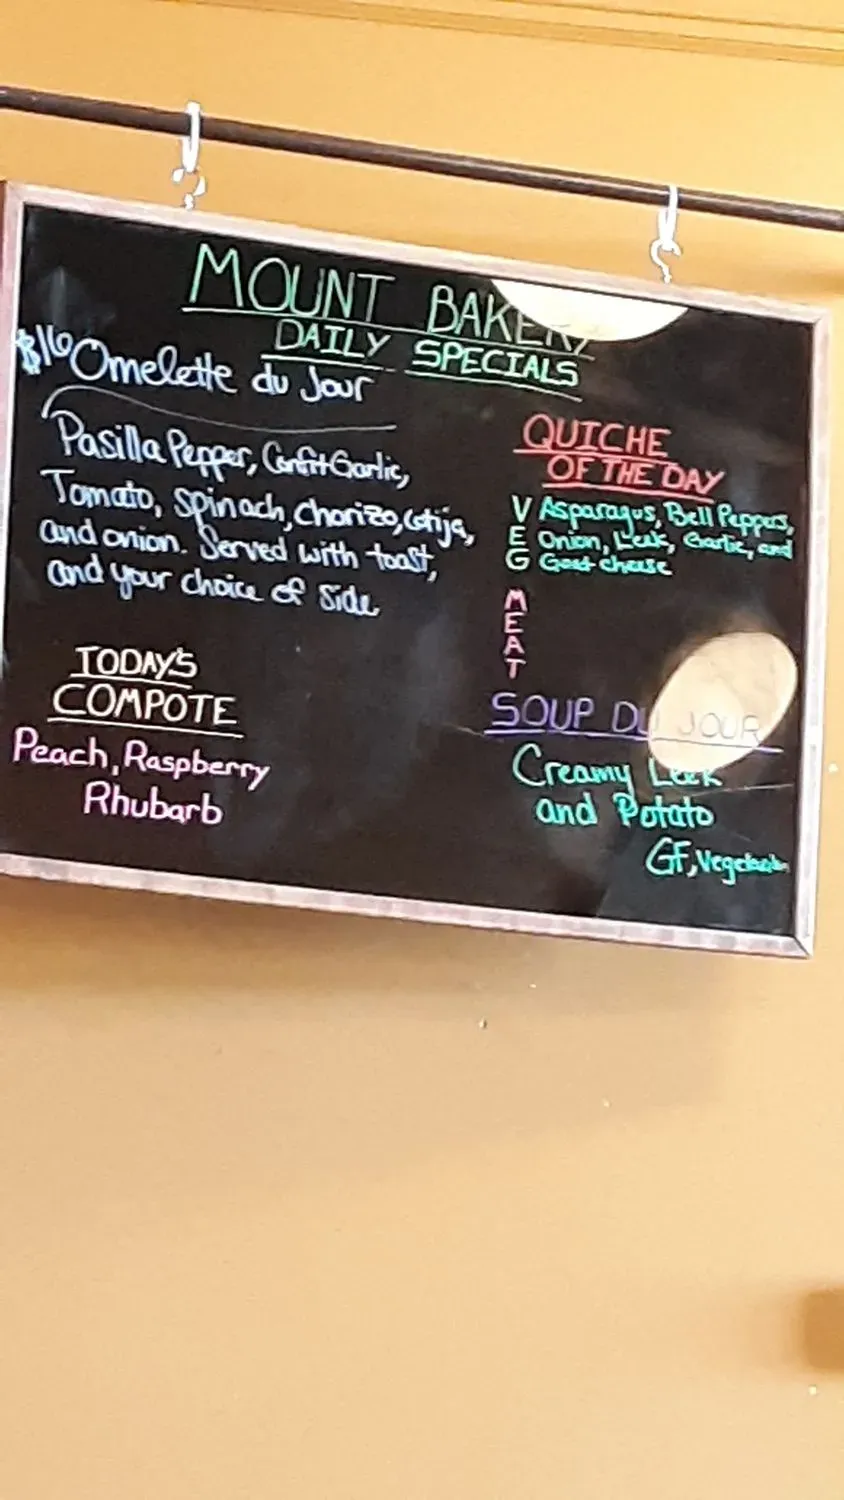 MOUNT BAKERY
DAILY SPECIALS
$16 Omelette du Jour
Pasilla Pepper, Confit Garlic,
Tomato, Spinach, Chorizo, Cotija,
and onion. Served with toast,
and your choice of side
TODAY'S
COMPOTE
Peach, Raspberry
Rhubarb
QUICHE
OF THE DAY
VEG
Asparagus, Bell Peppers,
Onion, Leek, Garlic, and
Goat cheese
MEAT
SOUP DU JOUR
Creamy Leek
and Potato
GF, Vegetarian